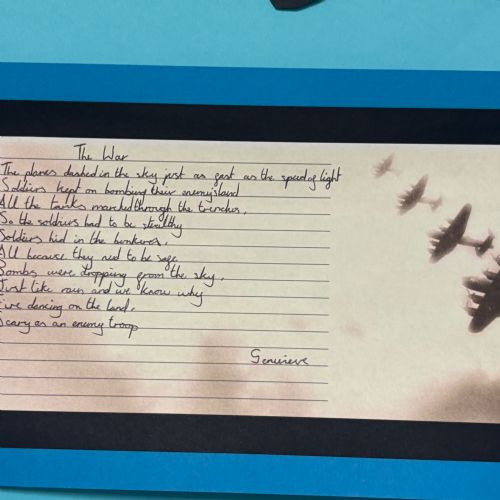 The War
The planes dashed in the sky just as fast as the speed of light
Soldiers kept on bombing their enemys land
All the tanks marched through the trenches.
So the soldiers had to be stealthy
Soldiers hid in the bunkers.
All because they need to be safe
Bombs were dropping from the sky.
Just like rain and we know why
Fire dancing on the land.
Scary as an enemy troop
Genevieve